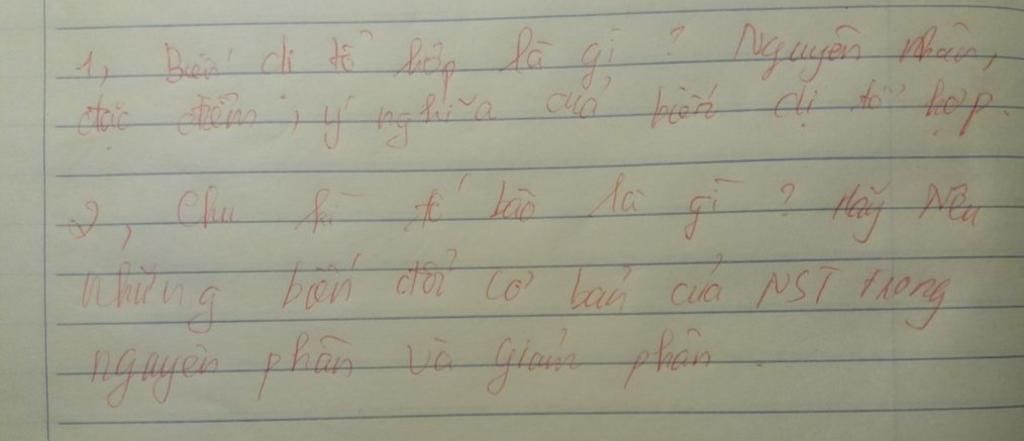 1, Biến dị tổ hợp là gì ? Nguyên nhân,
đặc điểm, ý nghĩa của biến dị tổ hợp.
2, Chu kì tế bào là gì ? Hãy Nêu
những biến đổi cơ bản của NST trong
nguyên phân và giảm phân.